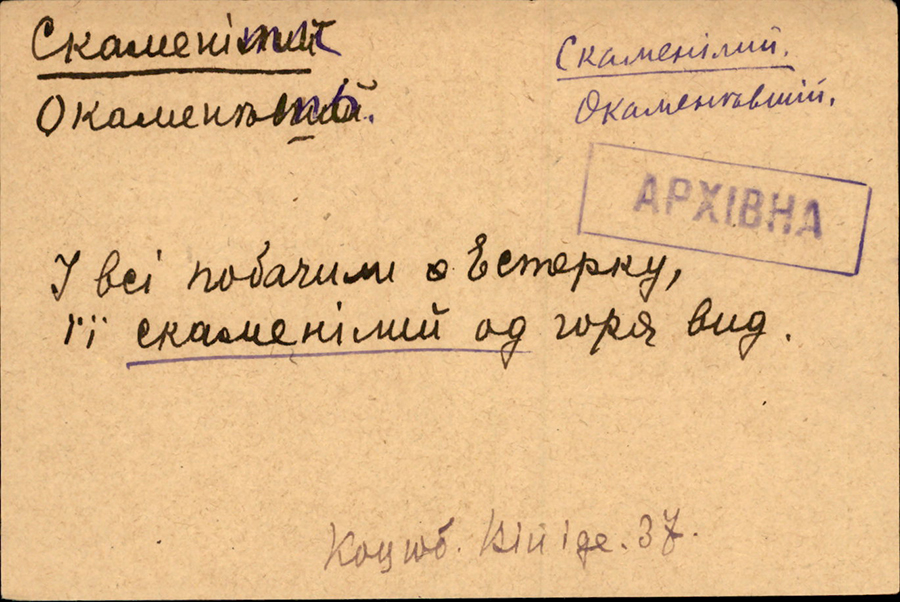 Скаменілий
Окаменѣ
Скаменілий.
Окаменѣвшій.
АРХІВНА
І всі побачили Естерку,
її скаменілий од горя вид.
Коцюб. Він іде. 37.